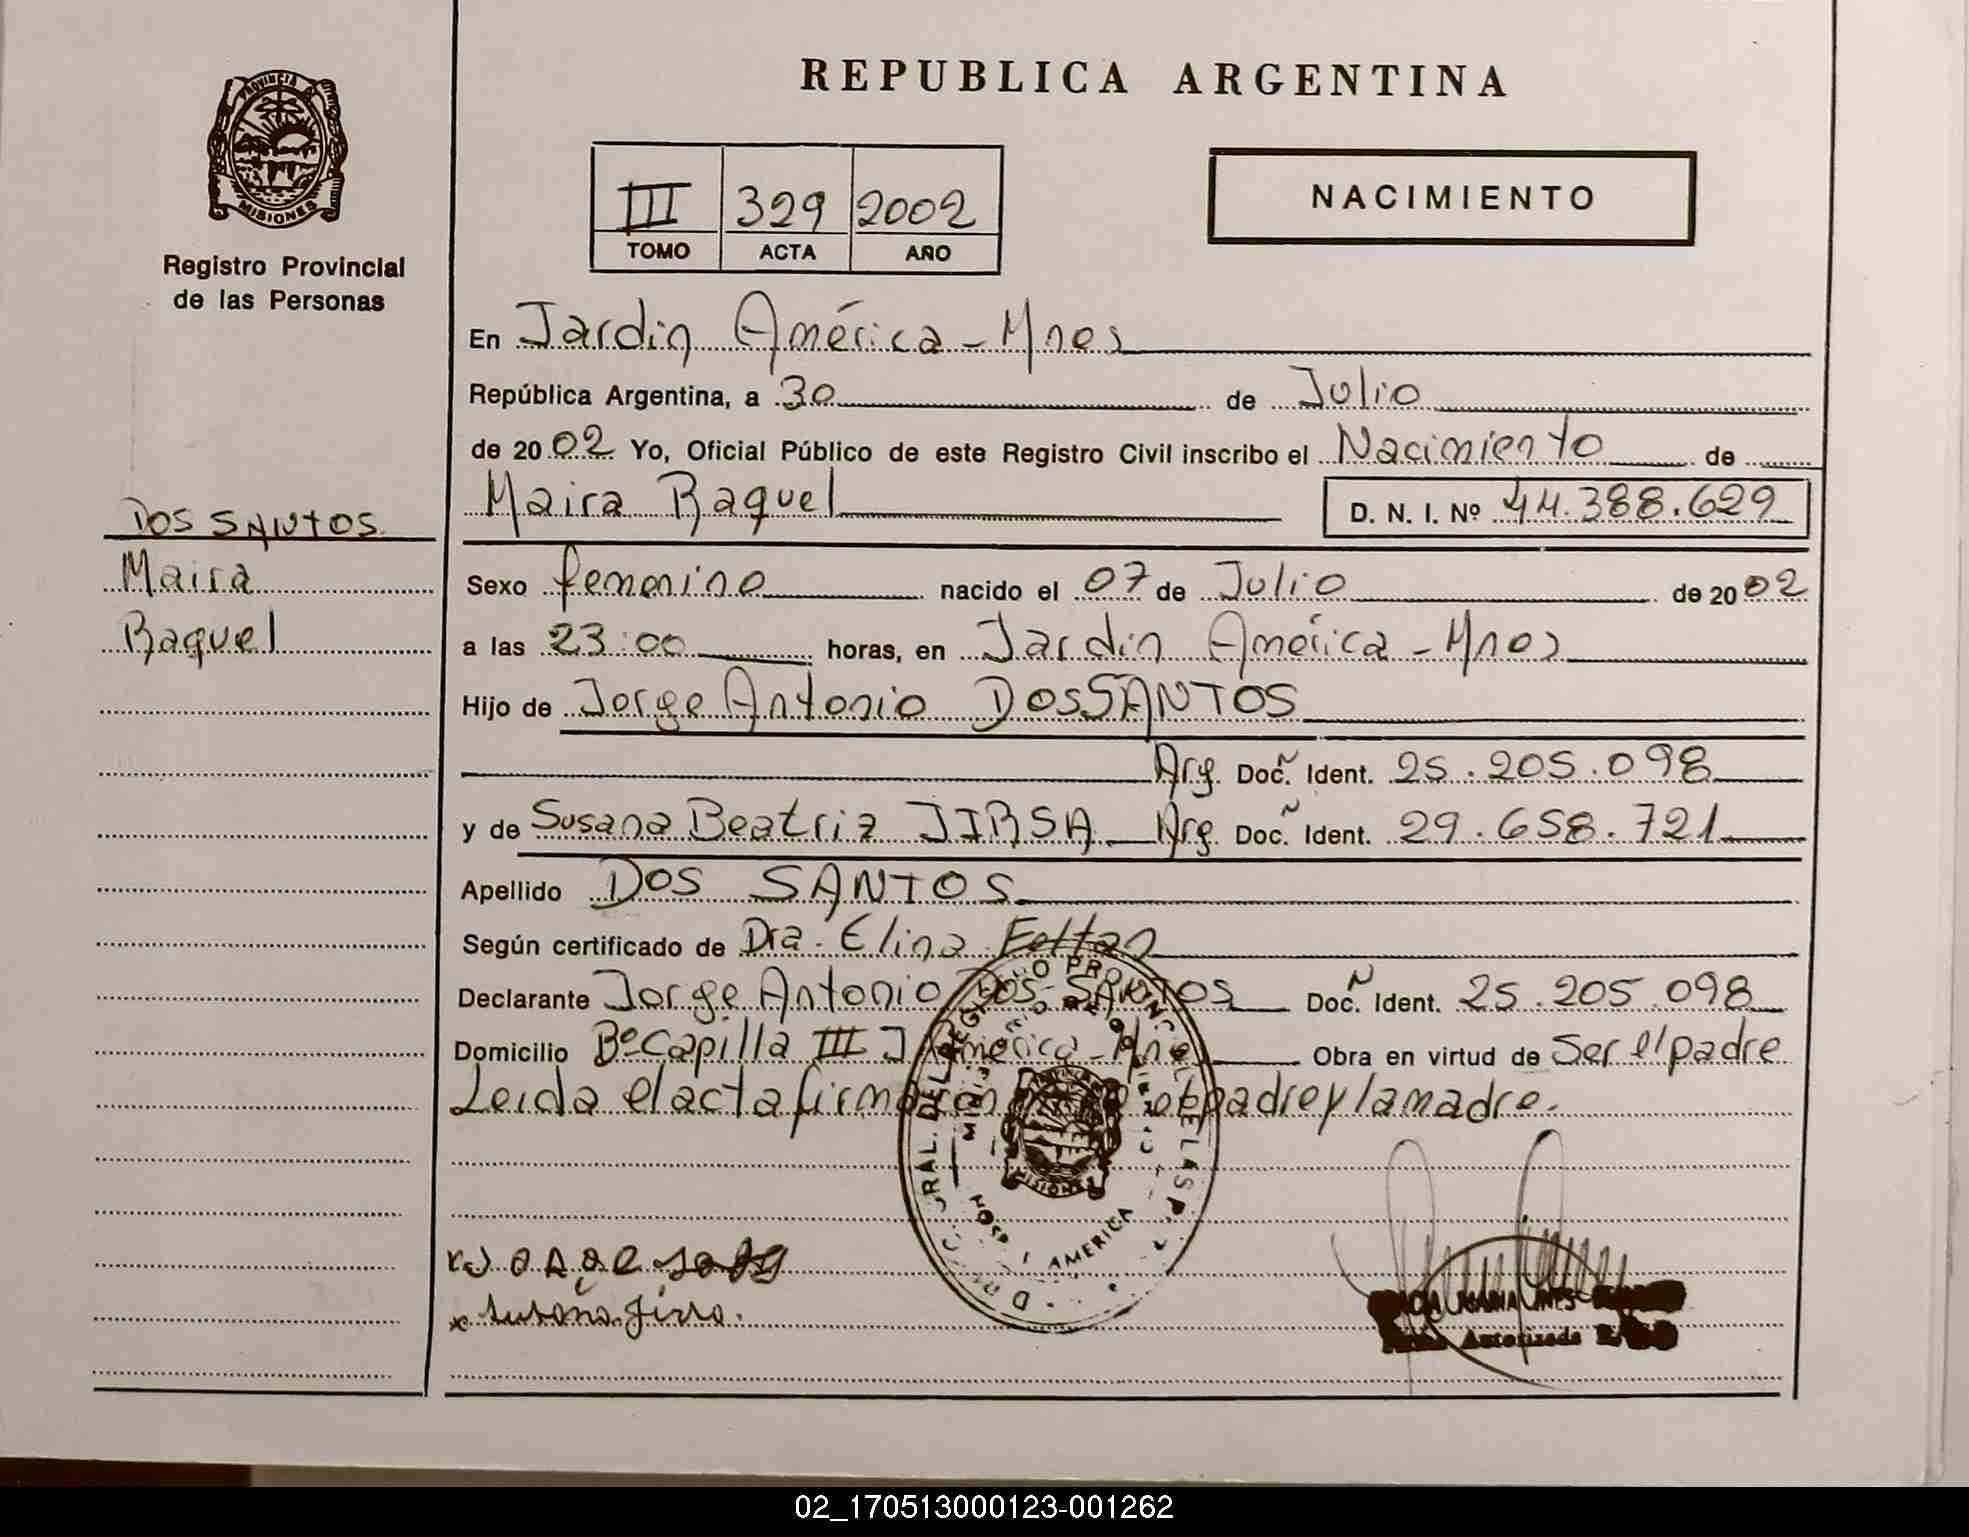 REPUBLICA ARGENTINA
PROVINCIA DE
MISIONES
Registro Provincial
de las Personas
III 329 2002
TOMO ACTA AÑO
NACIMIENTO
En Jardin América - Mnes
República Argentina, a 30 de Julio
de 2002 Yo, Oficial Público de este Registro Civil inscribo el Nacimiento de
Maira Raquel D. N. I. Nº 44.388.629
DOS SANTOS
Maira
Raquel
Sexo femenino nacido el 07 de Julio de 2002
a las 23:00 horas, en Jardin América - Mnes
Hijo de Jorge Antonio DOS SANTOS
Arg. Doc. Ñ Ident. 25.205.098
y de Susana Beatriz JIRSA Arg. Doc. Ñ Ident. 29.658.721
Apellido DOS SANTOS
Según certificado de Dra. Elina
Declarante Jorge Antonio DOS SANTOS Doc. Ñ Ident. 25.205.098
Domicilio Bº Capilla III J. América - Mnes Obra en virtud de Ser el padre
Leida el acta firmaron el padre y la madre.
GRAL. DEL REGISTRO PROVINC DE LAS P
AMERICA
MISIONES
MARIA INES
Autorizada
02_170513000123-001262